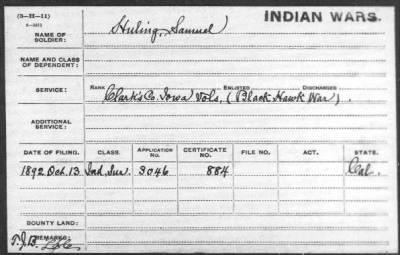 (3-II-11)
INDIAN WARS.
NAME OF SOLDIER: Huling, Samuel
NAME AND CLASS OF DEPENDENT:
RANK ENLISTED DISCHARGED
SERVICE: Clark's Co. Iowa Vols, (Black Hawk War).
ADDITIONAL SERVICE:
DATE OF FILING. CLASS. APPLICATION No. CERTIFICATE NO. FILE NO. ACT. STATE.
1892 Oct. 13. Ind. Sur. 3046 884 Cal.
BOUNTY LAND:
REMARKS:
T.J.B.